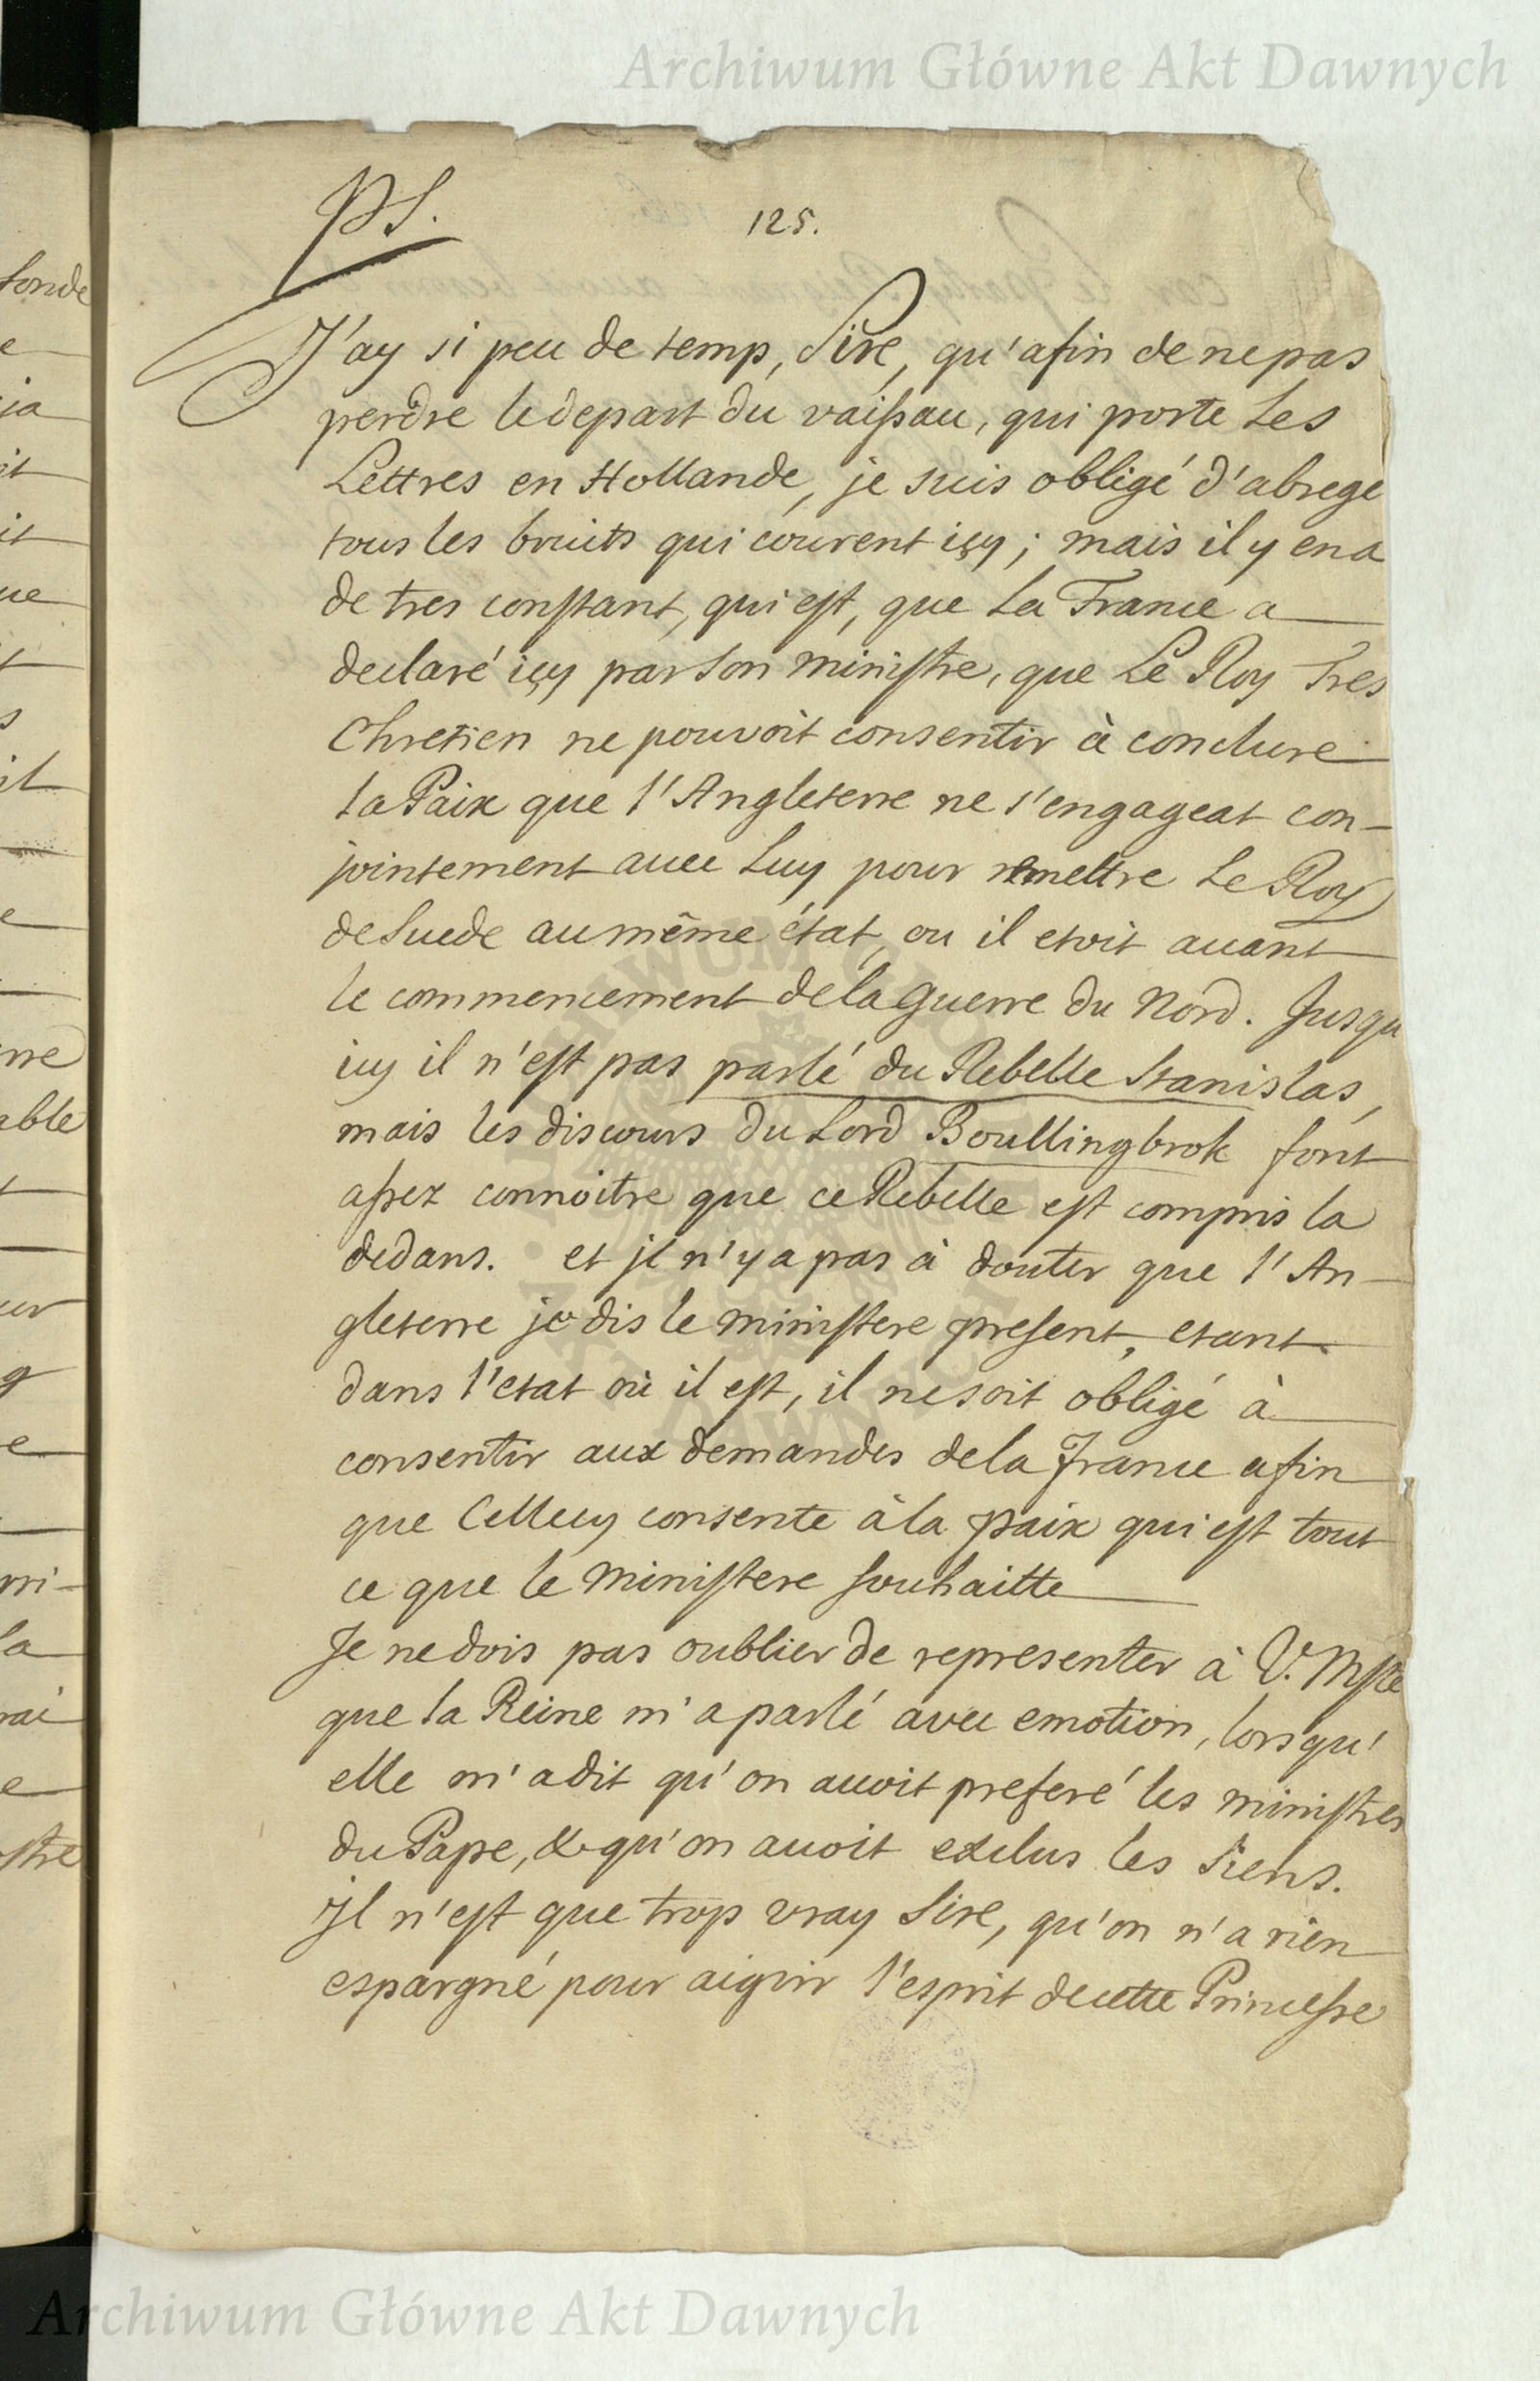 Archiwum Główne Akt Dawnych
PS.
125.
J'ay si peu de temp, Sire, qu'afin de ne pas
perdre le depart du vaissau, qui porte Les
Lettres en Hollande, je suis obligé d'abrege
tous les bruits qui courent icy; mais il y en a
de tres constant, qui est, que La France a
declaré icy par son ministre, que Le Roy Tres
Chretien ne pouvoit consentir à conclure
la Paix que l'Angleterre ne s'engageat con-
jointement avec Luy pour remettre Le Roy
de Suede au même état, ou il etoit auant
le commencement de la guerre du Nord. Jusqu
icy il n'est pas parlé du Rebelle Stanislas,
mais les discours du Lord Boullingbrok font
assez connoitre que ce Rebelle est compris la
dedans. et jl n'y a pas à douter que l'An-
gleterre je dis le ministere present, etant
dans l'etat où il est, il ne soit obligé à
consentir aux demandes de la France afin
que Cellecy consente à la paix qui est tout
ce que le ministere souhaitte
Je ne dois pas oublier de representer à V. Mste
que la Reine m'a parlé avec emotion, lorsqu'
elle m'a dit qu'on auoit preferé les ministres
du Pape, & qu'on auoit exclus les siens.
jl n'est que trop vray Sire, qu'on n'a rien
espargné pour aigrir l'esprit de cette Princesse
Archiwum Główne Akt Dawnych